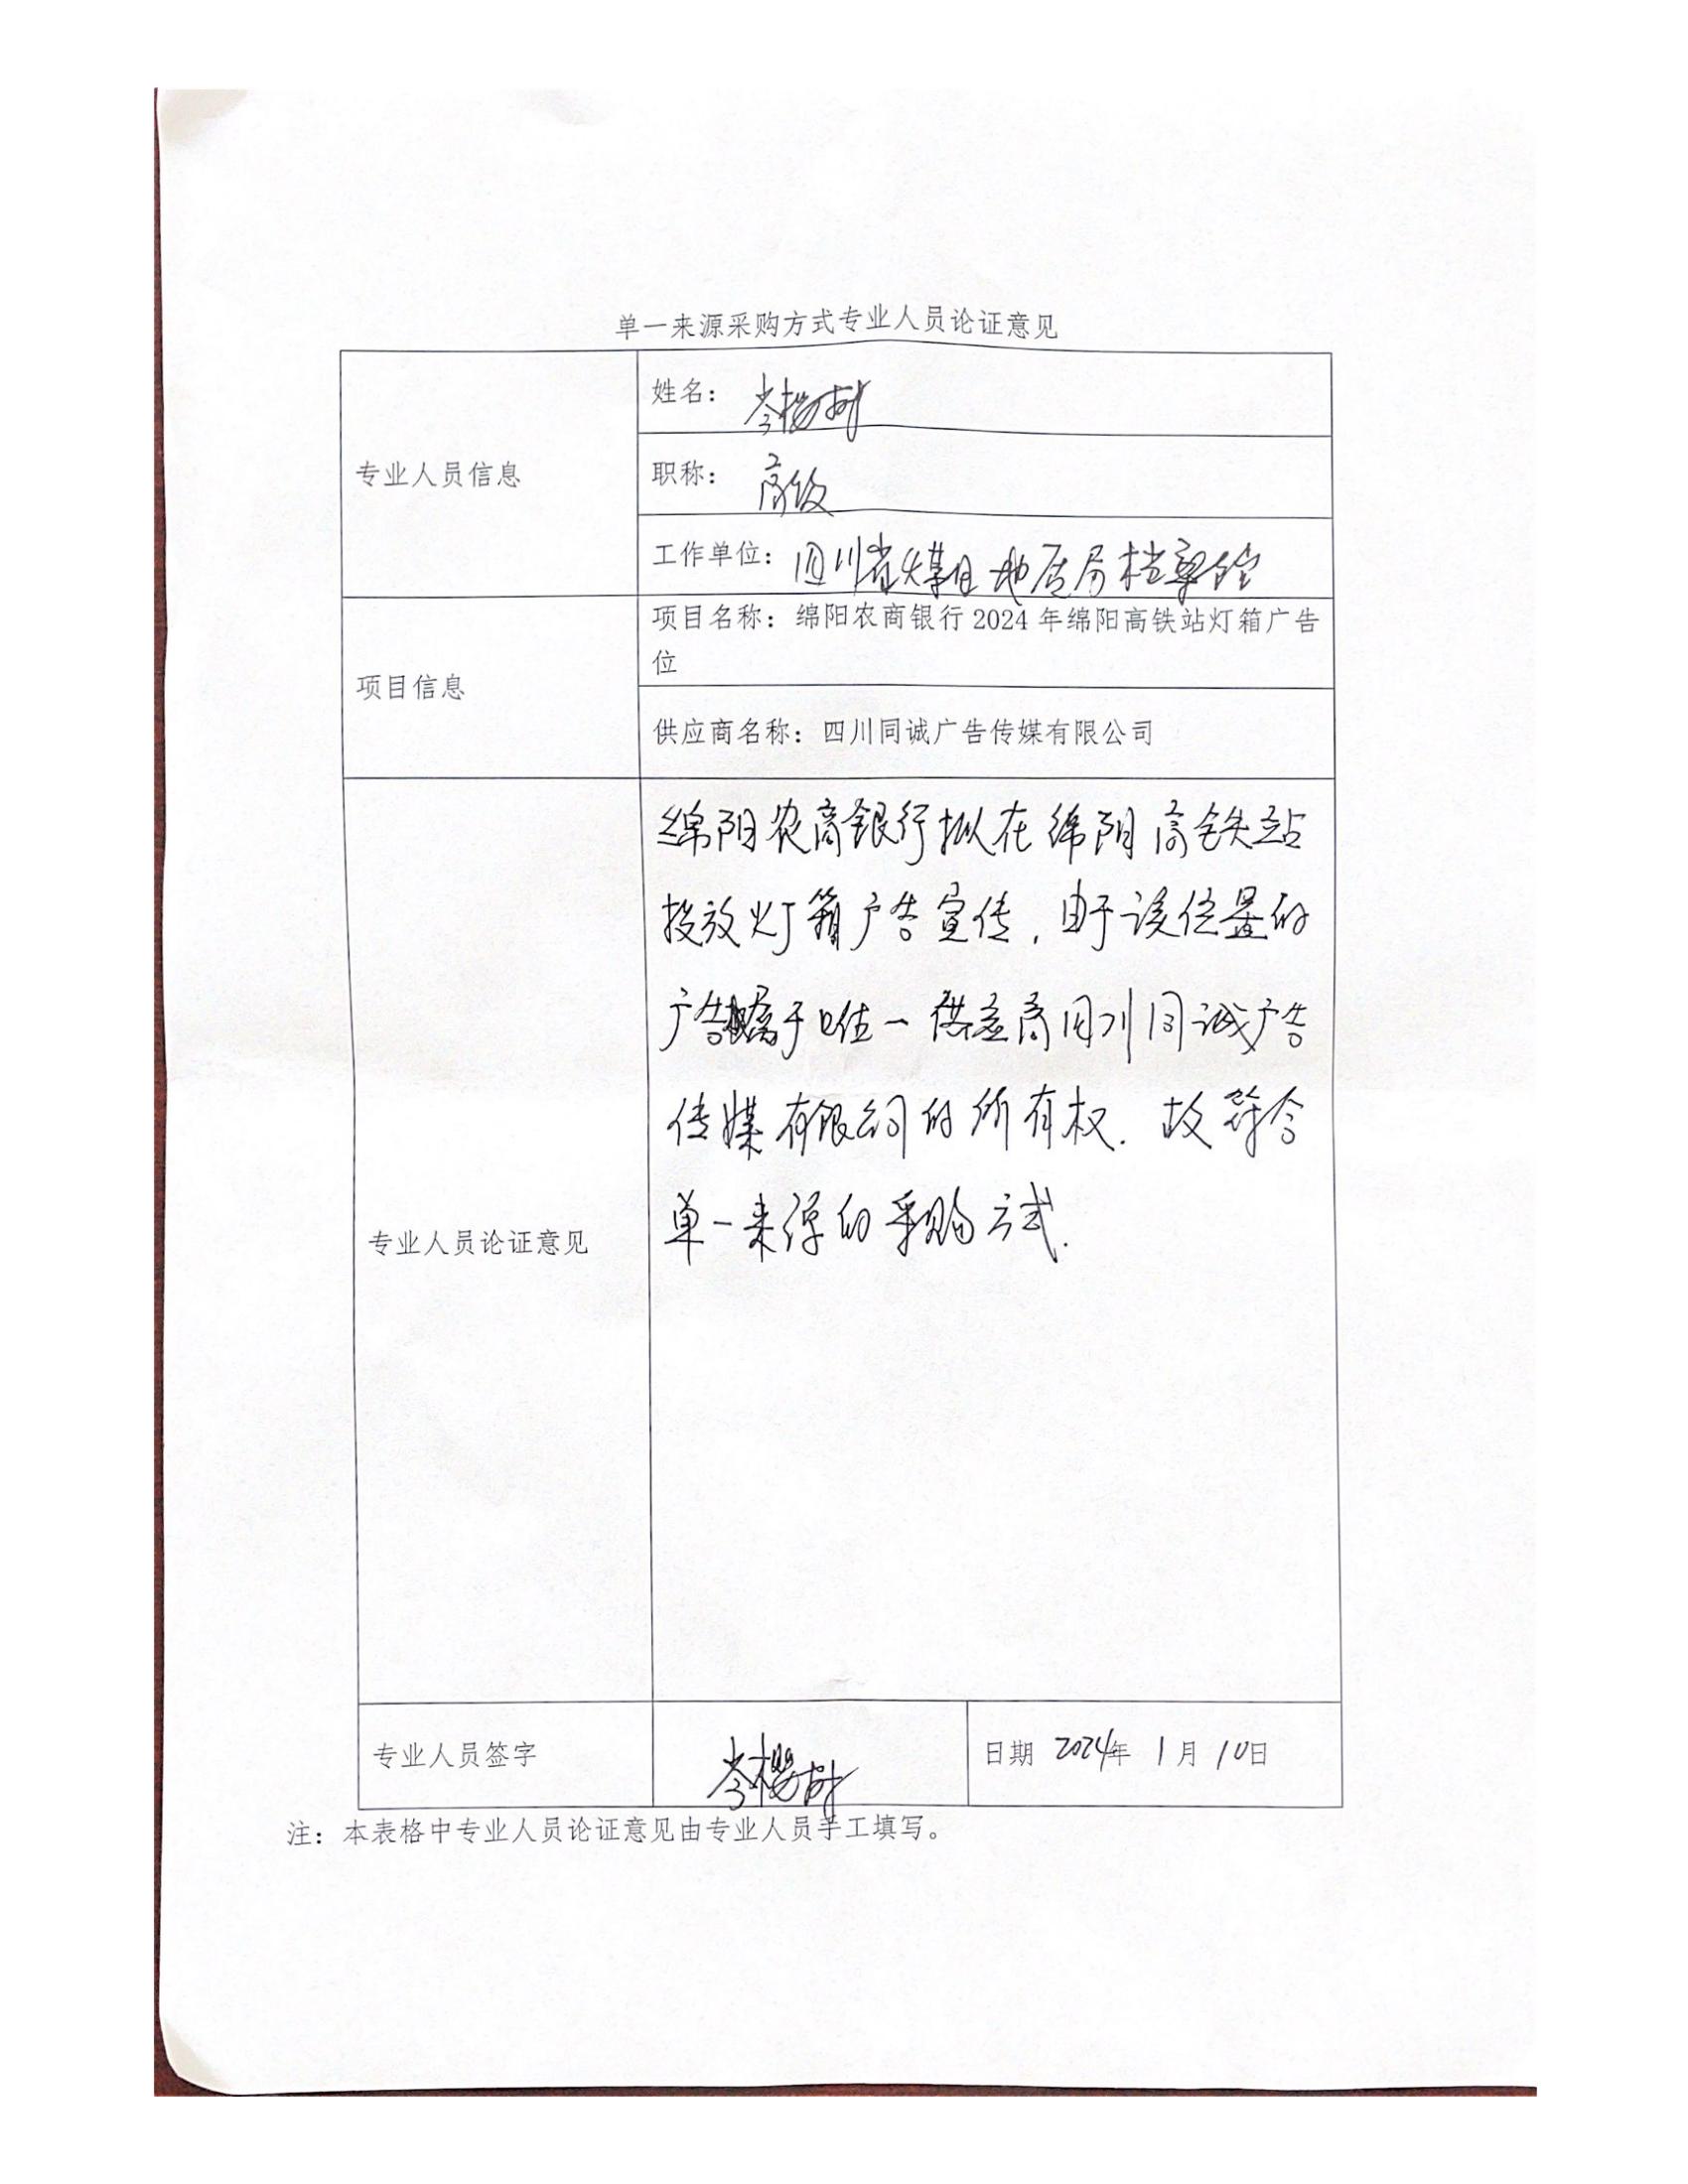 单一来源采购方式专业人员论证意见
姓名：岑樱树
专业人员信息
职称：高级
工作单位：四川省煤田地质局档案馆
项目名称：绵阳农商银行2024年绵阳高铁站灯箱广告
位
项目信息
供应商名称：四川同诚广告传媒有限公司
绵阳农商银行拟在绵阳高铁站
投放灯箱广告宣传，由于该位置的
广告属于唯一供应商四川同诚广告
传媒有限公司的所有权．故符合
单一来源的采购方式．
专业人员论证意见
专业人员签字 岑樱树 日期 2024年1月10日
注：本表格中专业人员论证意见由专业人员手工填写。